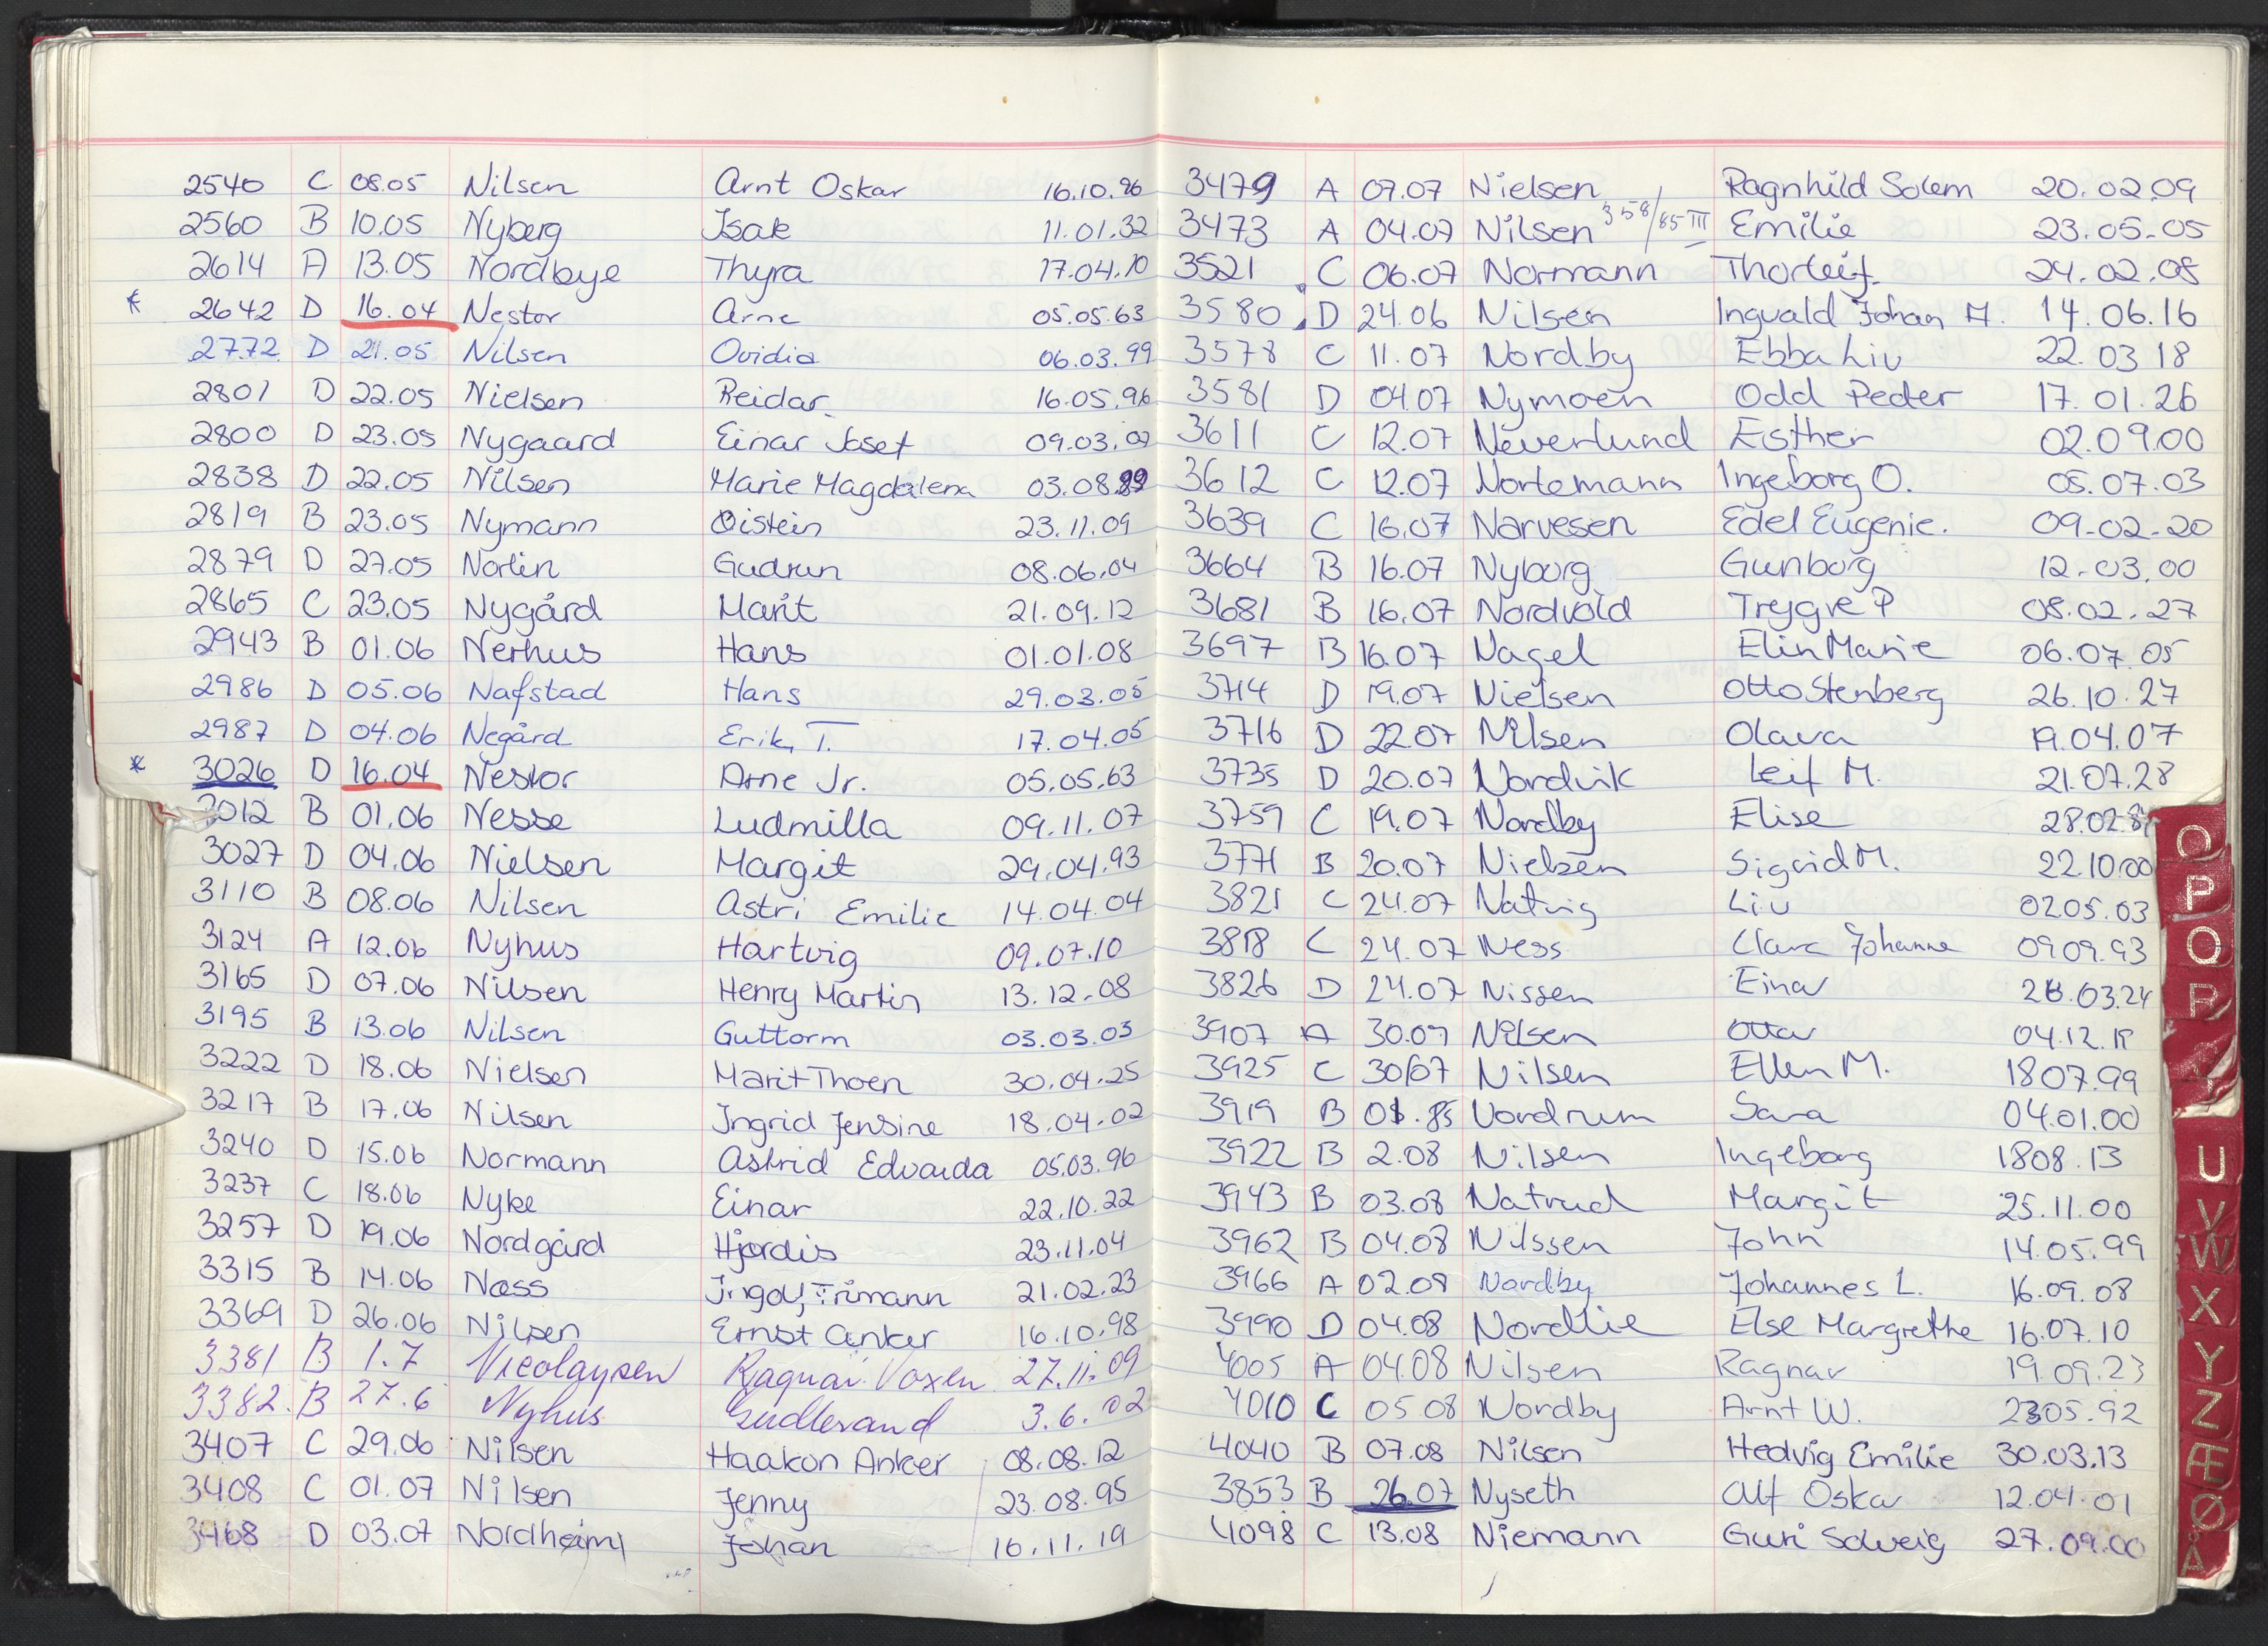 2540 C 08.05 Nilsen Arnt Oskar 16.10.96
2560 B 10.05 Nyberg Isak 11.01.32
2614 A 13.05 Nordbye Thyra 17.04.10
* 2642 D 16.04 Nestor Arne 05.05.63
2772 D 21.05 Nilsen Ovidia 06.03.99
2801 D 22.05 Nielsen Reidar 16.05.96
2800 D 23.05 Nygaard Einar Josef 09.03.07
2838 D 22.05 Nilsen Marie Magdalena 03.08.99
2819 B 23.05 Nymann Øistein 23.11.09
2879 D 27.05 Norlin Gudrun 08.06.04
2865 C 23.05 Nygård Marit 21.09.12
2943 B 01.06 Nerhus Hans 01.01.08
2986 D 05.06 Nafstad Hans 29.03.05
2987 D 04.06 Negård Erik T. 17.04.05
* 3026 D 16.04 Nestor Arne Jr. 05.05.63
3012 B 01.06 Nesse Ludmilla 09.11.07
3027 D 04.06 Nielsen Margit 29.04.93
3110 B 08.06 Nilsen Astri Emilie 14.04.04
3124 A 12.06 Nyhus Hartvig 09.07.10
3165 D 07.06 Nilsen Henry Martin 13.12.08
3195 B 13.06 Nilsen Guttorm 03.03.03
3222 D 18.06 Nielsen Marit Thoen 30.04.25
3217 B 17.06 Nilsen Ingrid Jensine 18.04.02
3240 D 15.06 Normann Astrid Edvarda 05.03.96
3237 C 18.06 Nyke Einar 22.10.22
3257 D 19.06 Nordgård Hjørdis 23.11.04
3315 B 14.06 Næss Ingolf Trimann 21.02.23
3369 D 26.06 Nilsen Ernst Anker 16.10.98
3381 B 1.7 Nicolaysen Ragnar Voxen 27.11.09
3382. B 27.6 Nyhus Gudbrand 3.6.02
3407 C 29.06 Nilsen Haakon Anker 08.08.12
3408 C 01.07 Nilsen Jenny 23.08.95
3468 D 03.07 Nordheim Johan 16.11.19
3479 A 07.07 Nielsen Ragnhild Solem 20.02.09
3473 A 04.07 Nilsen 358/85 III Emilie 23.05-05
3521 C 06.07 Normann Thorleif 24.02.08
3580 D 24.06 Nilsen Ingvald Johan H. 14.06.16
3578 C 11.07 Nordby Ebba Liv 22.03 18
3581 D 04.07 Nymoen Odd Peder 17.01.26
3611 C 12.07 Neverlund Esther 02.09.00
3612 C 12.07 Nortemann Ingeborg O. 05.07.03
3639 C 16.07 Narvesen Edel Eugenie. 09-02-20
3664 B 16.07 Nyborg Gunborg 12-03.00
3681 B 16.07 Nordvold Trygve P 08.02.27
3697 B 16.07 Nagel Elin Marie 06.07.05
3714 D 19.07 Nielsen Otto Stenberg 26.10.27
3716 D 22.07 Nilsen Olava 19.04.07
3735 D 20.07 Nordvik Leif M. 21.07.28
3759 C 19.07 Nordby Elise 28.02.8
3771 B 20.07 Nielsen Sigrid M. 22.10 00
3821 C 24.07 Natvig Liv 02 05.03
3818 C 24.07 Ness Clara Johanne 09 09.93
3826 D 24.07 Nissen Einar 03.24
3907 A 30.07 Nilsen Ottar 04.12.18
3925 C 30/07 Nilsen Ellen M. 18 07.99
3919 B 85 Nordrum Sara 04.01.00
3922 B 2.08 Nilsen Ingeborg 18 08.13
3943 B 03.08 Natrud Margit 25.11.00
3962 B 04.08 Nilssen John 14.05.99
3966 A 02.08 Nordby Johannes L. 16.09.08
3990 D 04.08 Nordlie Else Margrethe 16.07.10
4005 A 04.08 Nilsen Ragnar 19.09.23
4010 C 05 08 Nordby Arnt W. 2305.92
4040 B 07.08 Nilsen Hedvig Emilie 30.03.13
3853 B 26.07 Nyseth Alf Oskar 12.04.01
4098 C 13.08 Niemann Guri Solveig 27.09.00
O
P
Q
R
U
V
W
X
Y
Z
Æ
Ø
Å